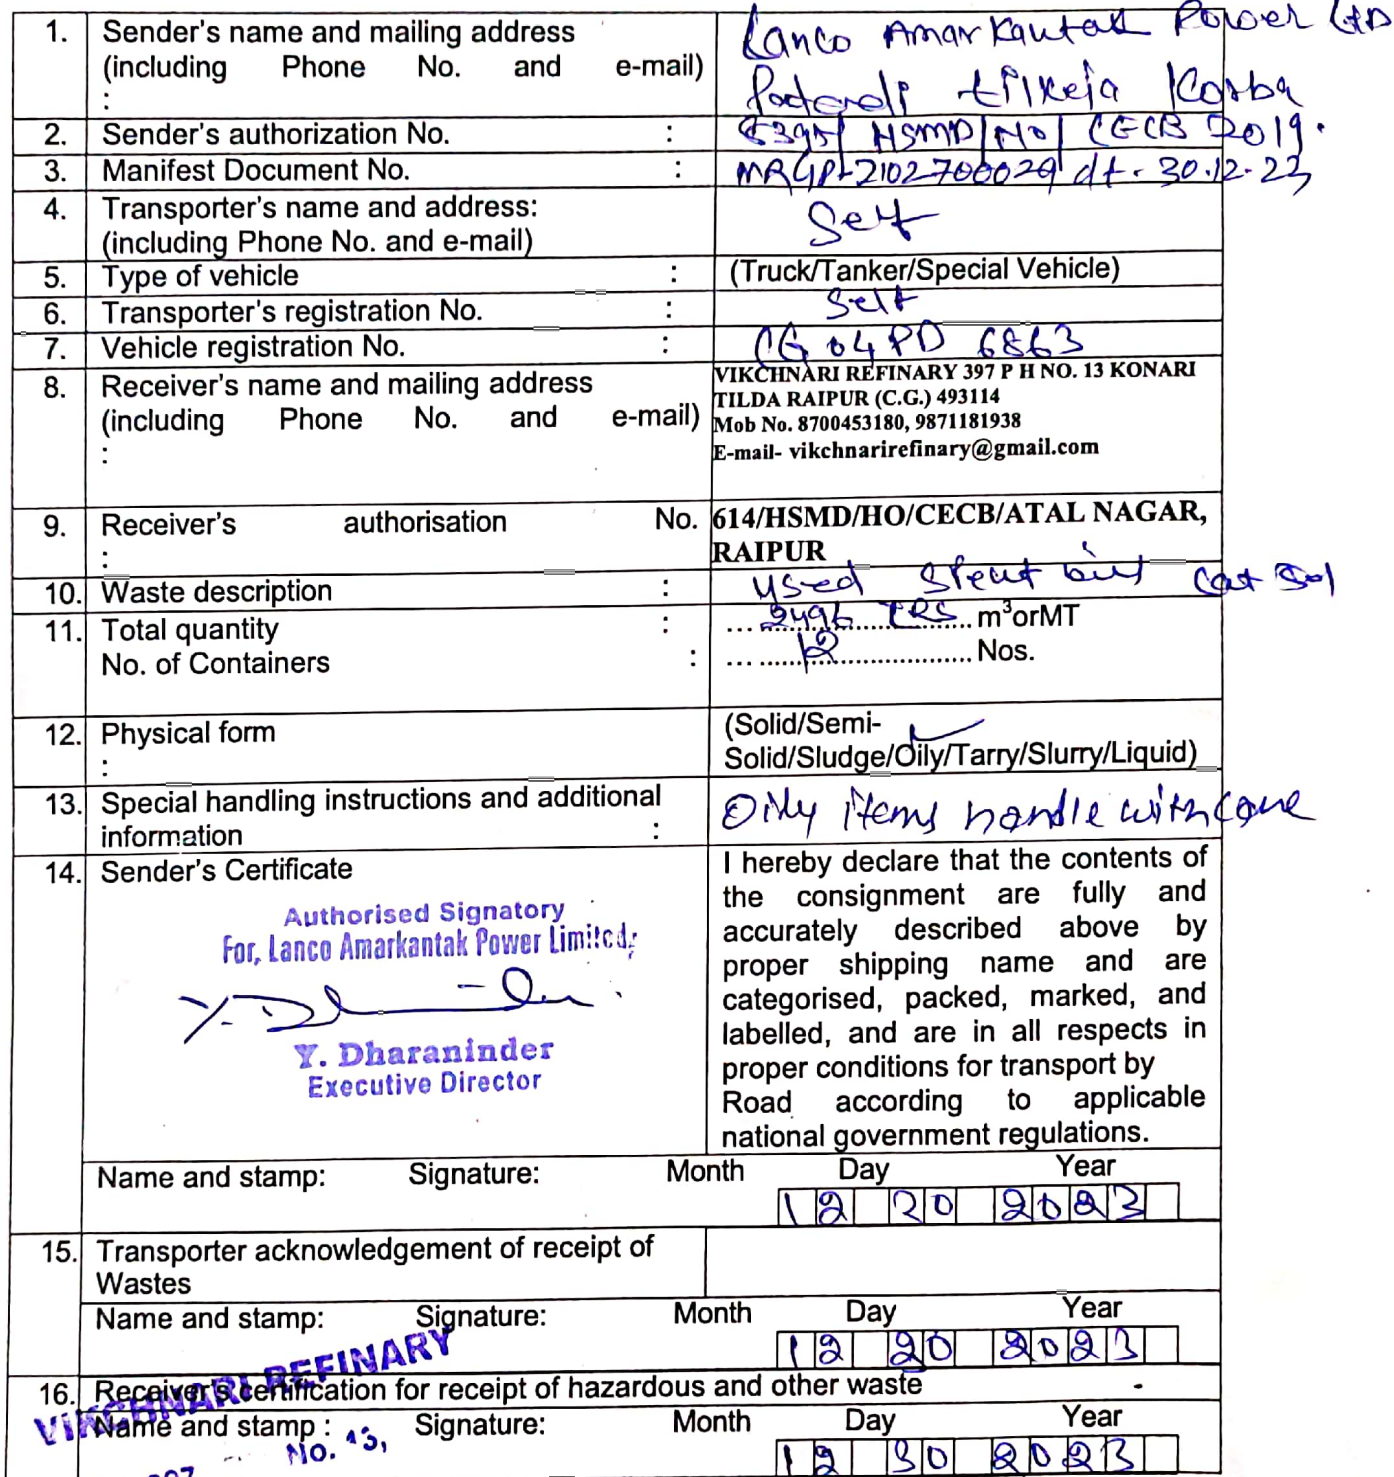 1. Sender's name and mailing address
(including Phone No. and e-mail)
:
Lanco Amarkantak Power LTD
tilkeja Korba
2. Sender's authorization No. :
HSMD/HO/CECB 2019.
3. Manifest Document No. :
2102700029 dt. 30.12.23
4. Transporter's name and address:
(including Phone No. and e-mail)
Self
5. Type of vehicle : (Truck/Tanker/Special Vehicle)
6. Transporter's registration No. : Self
7. Vehicle registration No. : CG 04 PD 6863
8. Receiver's name and mailing address
(including Phone No. and e-mail)
:
VIKCHNARI REFINARY 397 P H NO. 13 KONARI
TILDA RAIPUR (C.G.) 493114
Mob No. 8700453180, 9871181938
E-mail- vikchnarirefinary@gmail.com
9. Receiver's authorisation No.
:
614/HSMD/HO/CECB/ATAL NAGAR,
RAIPUR
10. Waste description : Used Spent
11. Total quantity : ...2496 LRS... m³orMT
No. of Containers : ...12... Nos.
12. Physical form
:
(Solid/Semi-
Solid/Sludge/Oily/Tarry/Slurry/Liquid)
13. Special handling instructions and additional
information :
Oily items handle with care
14. Sender's Certificate
Authorised Signatory
For, Lanco Amarkantak Power Limited,
Y. Dharaninder
Executive Director
I hereby declare that the contents of
the consignment are fully and
accurately described above by
proper shipping name and are
categorised, packed, marked, and
labelled, and are in all respects in
proper conditions for transport by
Road according to applicable
national government regulations.
Name and stamp: Signature: Month Day Year
12 2023
15. Transporter acknowledgement of receipt of
Wastes
Name and stamp: Signature: Month Day Year
12 2023
16. Receiver's certification for receipt of hazardous and other waste
VIKCHNARI REFINARY
Name and stamp : Signature: Month Day Year
No. 13,
12 30 2023